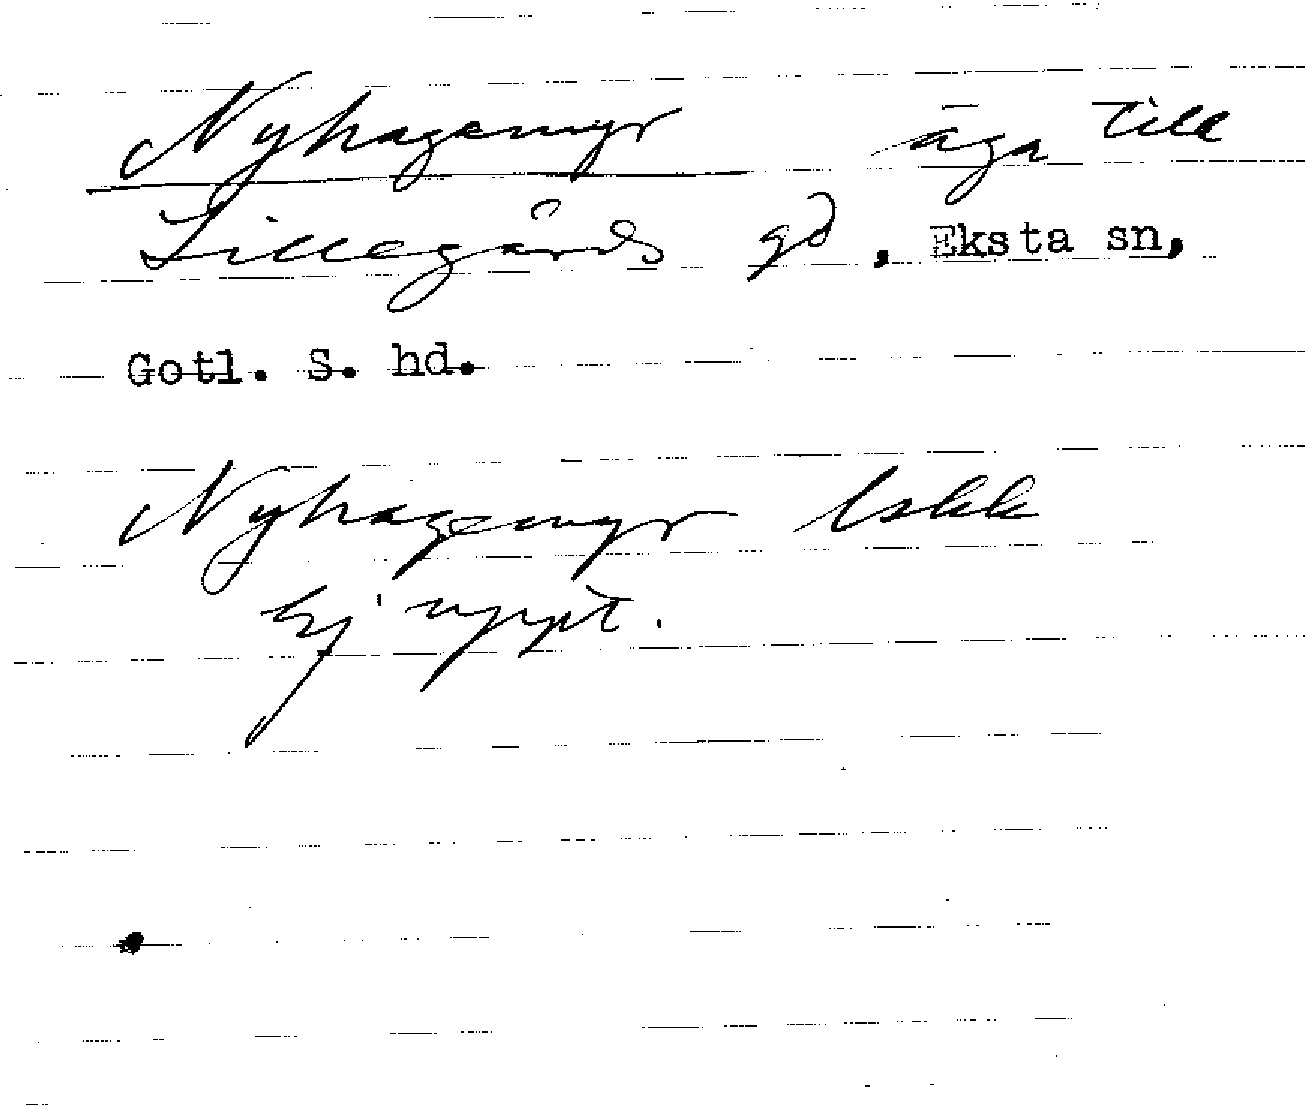 Nyhagemyr äga till
Lillegårds gd, Eksta sn,
Gotl. S. hd.
Nyhagemyr lskk
Ej uppt.